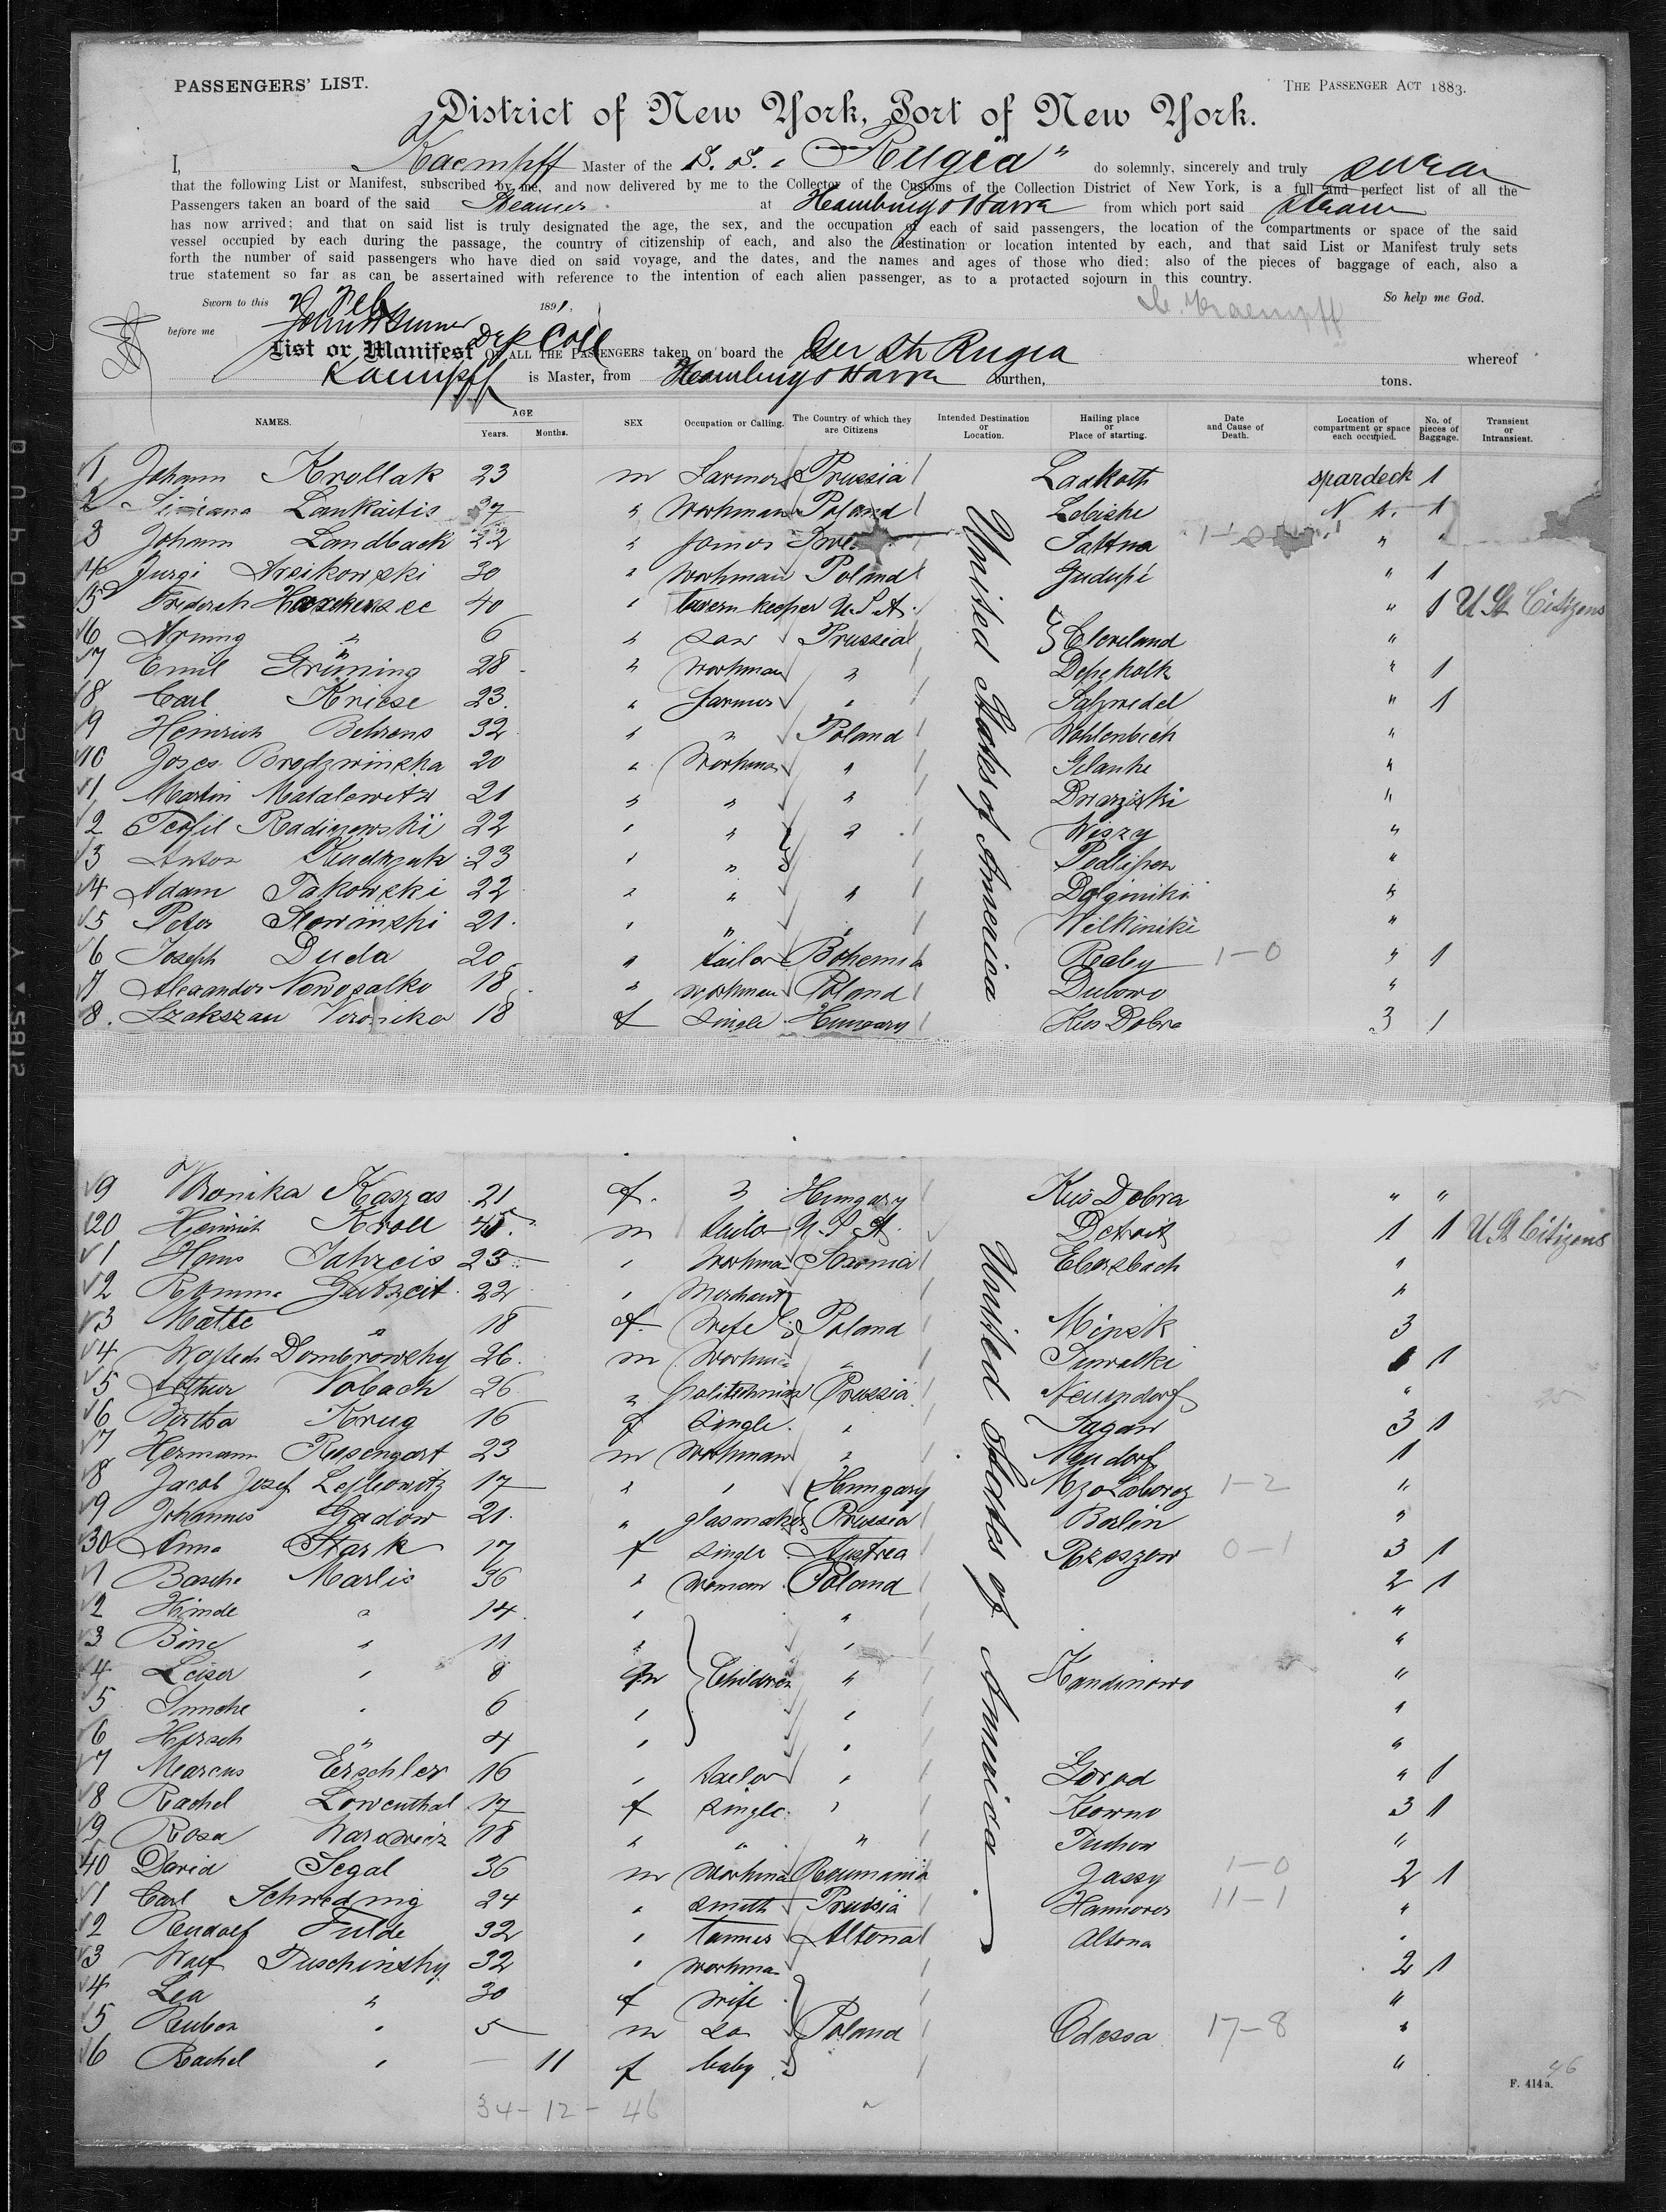 PASSENGERS' LIST. THE PASSENGER ACT 1883.
District of New York, Port of New York.
I, Kaempff Master of the S. S. "Rugia" do solemnly, sincerely and truly swear
that the following List or Manifest, subscribed by me, and now delivered by me to the Collector of the Customs of the Collection District of New York, is a full and perfect list of all the
Passengers taken an board of the said Steamer at Hamburg & Havre from which port said steamer
has now arrived; and that on said list is truly designated the age, the sex, and the occupation of each of said passengers, the location of the compartments or space of the said
vessel occupied by each during the passage, the country of citizenship of each, and also the destination or location intented by each, and that said List or Manifest truly sets
forth the number of said passengers who have died on said voyage, and the dates, and the names and ages of those who died; also of the pieces of baggage of each, also a
true statement so far as can be assertained with reference to the intention of each alien passenger, as to a protacted sojourn in this country.
Sworn to this Feb 1891. C. Kaempff So help me God.
before me Dep Coll
List or Manifest OF ALL THE PASSENGERS taken on board the Ger St Rugia whereof
Kaempff is Master, from Hamburg & Havre burthen, tons.
NAMES. AGE Years. Months. SEX Occupation or Calling. The Country of which they are Citizens Intended Destination or Location. Hailing place or Place of starting. Date and Cause of Death. Location of compartment or space each occupied. No. of pieces of Baggage. Transient or Intransient.
United States of America
1 Johann Krollak 23 m Farmer Prussia Ladkoth spardeck 1
2 Lankaitis 37 " Workman Poland Lebishe N 1. 1
3 Johann Landback 22 " Sattna " "
4 Jurgi 30 " Workman Poland Gudupi " 1
5 Friderich 40 " tavern keeper U.S.A. " 1 U St Citizens
6 Arning " 6 " son Prussia Cleveland "
7 Emil Grüning 28 " Workman " Depekolk " 1
8 Carl Kriese 23. " farmer " Salzwedel " 1
9 Heinrich Behrens 32 " " Poland Wohlenbeck "
10 Josef Brodzwinska 20 " Workman " Gelanke "
1 Martin Matalewitz 21 " " " Dwarziski "
2 Teofil Radizewskii 22 " " " Wiszy "
3 Anton Kudrzak 23 " " Podlipen "
4 Adam Takowski 22 " " " Dolginiki "
5 Peter Slowinski 21. " " " Wilkiniki "
6 Joseph Duda 20 " tailor Bohemia Raby 1-0 " 1
7 Alexander Nowosalko 18 " workman Poland Dubowo "
8. Szakszau Veronika 18 f Single Hungary Kis Dobra 3 1
9 Veronika Kaszas 21 f. " Hungary Kis Dobra " "
20 Heinrich Kroll 45 m tailor U.S.A. Detroit 1 1 U St Citizens
1 Hans Jahreis 23 " Workman Saxonia Ebersbach "
2 Gutzeit 22 " Merchant "
3 Matte " 18 f. Wife Poland Minsk 3
4 Wojtech Dombrowsky 26. m Workman " Suwalki 1 1
5 Arthur Vobach 26 " Prussia Neuendorf "
6 Bertha Krug 16 f Single. " Sagan 3 1
7 Hermann Rosengart 23 m Workman " Neudorf 1
8 Jacob Josef Lefkowitz 17 " " Hungary Mzo Laborcz 1-2 "
9 Johannes Gadow 21. " glasmaker Prussia Berlin "
30 Anna Stark 17 f Single Austrea Rzeszow 0-1 3 1
1 Basche Marlis 36 " Woman Poland 2 1
2 Hinde " 14 " " "
3 Bine " 11 " " "
4 Leiser " 8 m Children " Kandinowo "
5 " 6 " " "
6 Hersch " 4 " " "
7 Marcus Erschler 16 " tailor " Gorod " 1
8 Rachel Lowenthal 17 f Single. " Kowno 3 1
9 Rosa 18 " " " Tuchow "
40 David Segal 36 m Workman Roumania Jassy 1-0 2 1
1 Carl Schweding 24 " smith Prussia Hannover 11-1 "
2 Rudolf Fulde 32 " tanner Altona Altona "
3 Wolf Tuschinsky 32 " Workman 2 1
4 Lea " 30 f wife "
5 Ruben " 5 m son Poland Odessa 17-8 "
6 Rachel " — 11 f baby "
United States of America
46
F. 414 a.
34-12-46